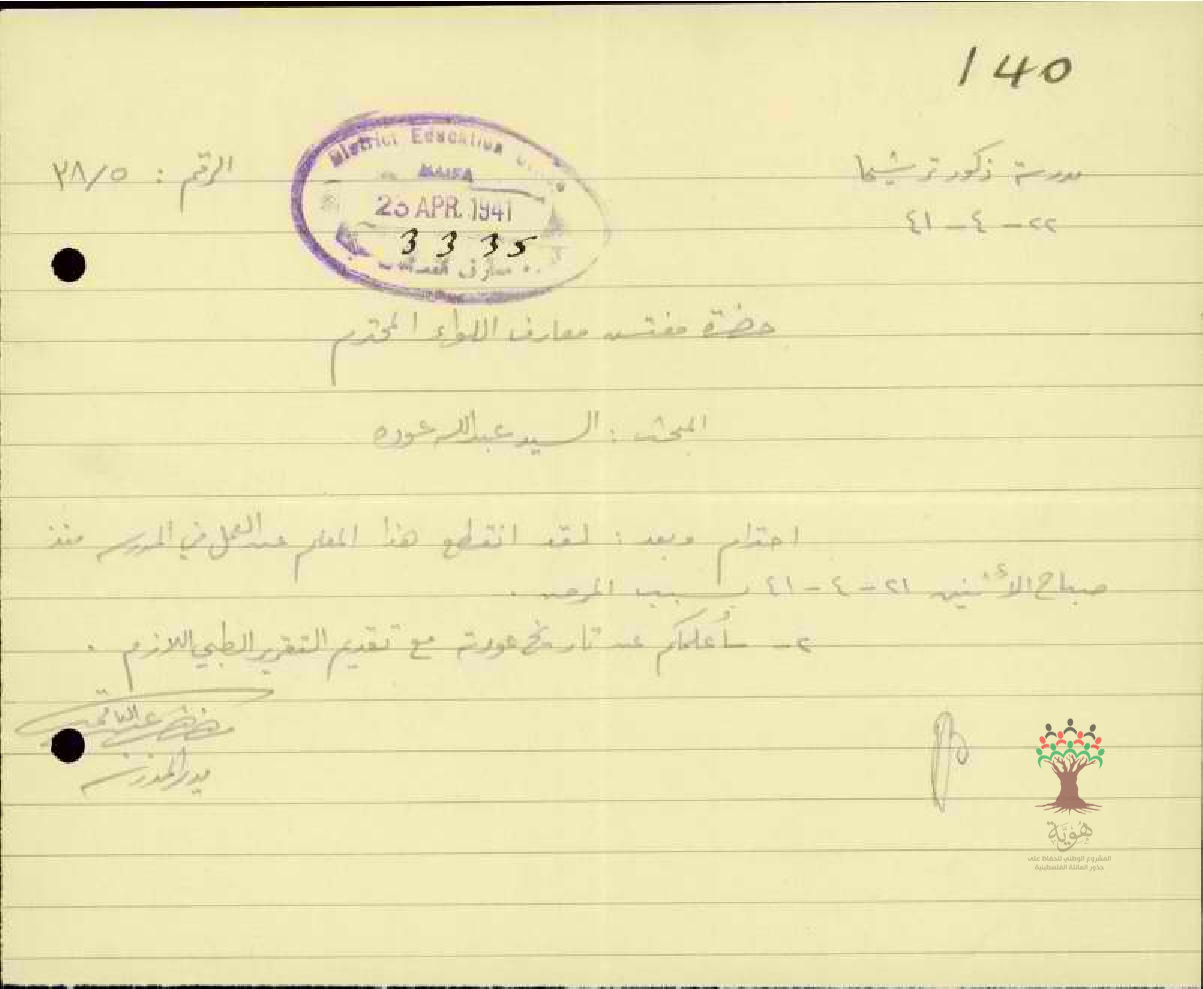 140
مدرسة ذكور ترشيحا
الرقم : ٢٨/٥
٢٢ - ٤ - ٤١
District Education
HAIFA
23 APR. 1941
3335
معارف
حضرة مفتش معارف اللواء المحترم
المبحث : السيد عبدالله عوده
احترام وبعد : لقد انقطع هذا المعلم عن العمل في المدرسه منذ
صباح الأثنين ٢١ - ٤ - ٤١ بسبب المرض .
٢ - سأعلمكم عن تاريخ عودته مع تقديم التقرير الطبي اللازم .
مدير المدرسه
هُوِيَّة
المشروع الوطني للحفاظ على
جذور العائلة الفلسطينية